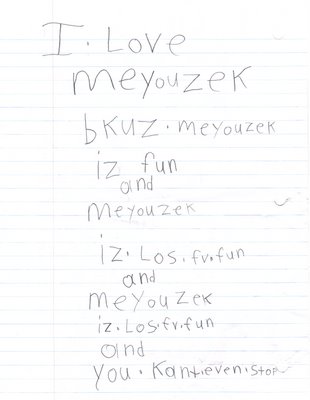 I. Love
meyouzek
bkuz. meyouzek
iz fun
and
meyouzek
iz. Los. fv. fun
and
meyouzek
iz. Los. fv. fun
and
you. kant. even. stop